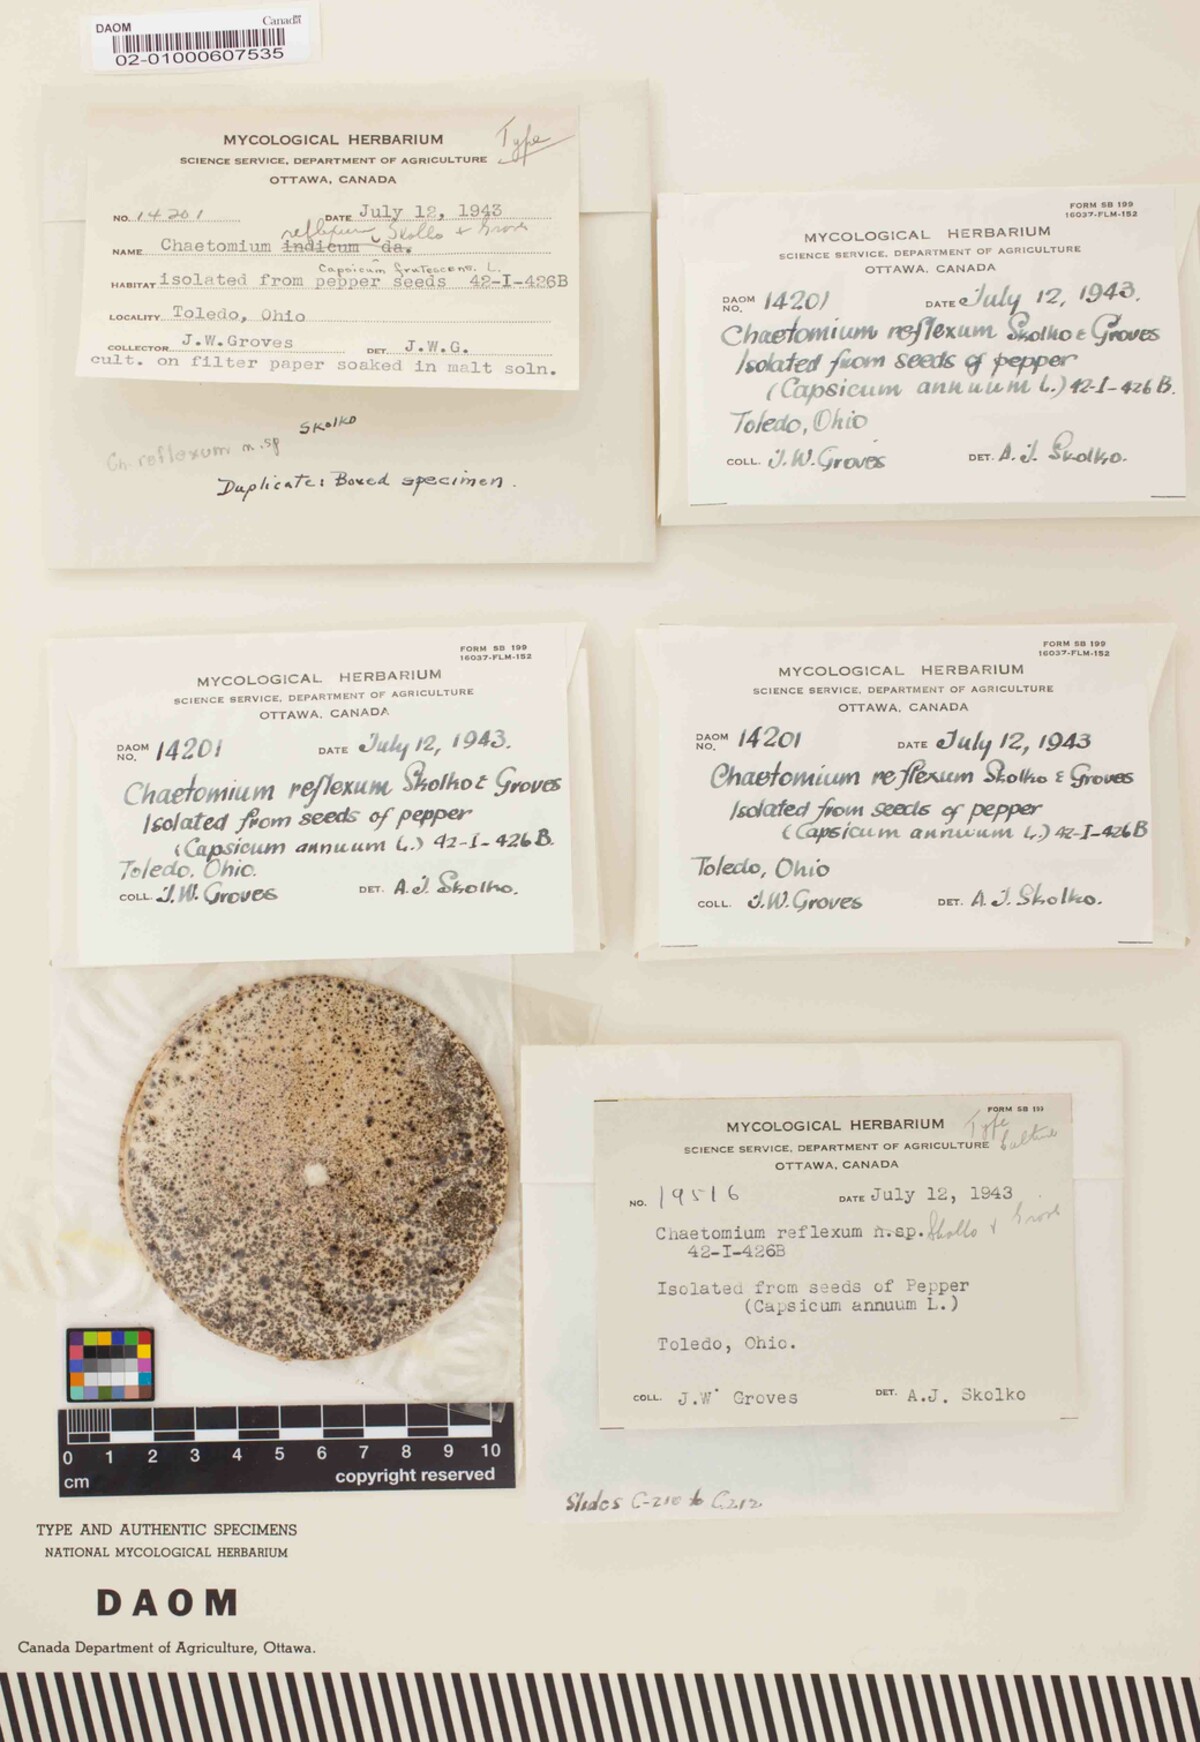 DAOM
Canada
02-01000607535
MYCOLOGICAL HERBARIUM
SCIENCE SERVICE, DEPARTMENT OF AGRICULTURE
OTTAWA, CANADA
Type
NO. 14201 DATE July 12, 1943
reflexum Skolko & Groves
NAME Chaetomium indicum da.
Capsicum frutescens L.
HABITAT isolated from pepper seeds 42-I-426B
LOCALITY Toledo, Ohio
COLLECTOR J.W.Groves DET. J.W.G.
cult. on filter paper soaked in malt soln.
Ch. reflexum n.sp Skolko
Duplicate: Boxed specimen.
FORM SB 199
16037-FLM-152
MYCOLOGICAL HERBARIUM
SCIENCE SERVICE, DEPARTMENT OF AGRICULTURE
OTTAWA, CANADA
DAOM NO. 14201 DATE July 12, 1943.
Chaetomium reflexum Skolko & Groves
Isolated from seeds of pepper
(Capsicum annuum L.) 42-I-426B.
Toledo, Ohio
COLL. J.W.Groves DET. A.J. Skolko.
FORM SB 199
16037-FLM-152
MYCOLOGICAL HERBARIUM
SCIENCE SERVICE, DEPARTMENT OF AGRICULTURE
OTTAWA, CANADA
DAOM NO. 14201 DATE July 12, 1943.
Chaetomium reflexum Skolko & Groves
Isolated from seeds of pepper
(Capsicum annuum L.) 42-I-426B.
Toledo, Ohio.
COLL. J.W. Groves DET. A.J. Skolko.
FORM SB 199
16037-FLM-152
MYCOLOGICAL HERBARIUM
SCIENCE SERVICE, DEPARTMENT OF AGRICULTURE
OTTAWA, CANADA
DAOM NO. 14201 DATE July 12, 1943
Chaetomium reflexum Skolko & Groves
Isolated from seeds of pepper
(Capsicum annuum L.) 42-I-426B
Toledo, Ohio
COLL. J.W.Groves DET. A.J. Skolko.
FORM SB 199
MYCOLOGICAL HERBARIUM
Type Culture
SCIENCE SERVICE, DEPARTMENT OF AGRICULTURE
OTTAWA, CANADA
NO. 19516 DATE July 12, 1943
Chaetomium reflexum n.sp. Skolko & Groves
42-I-426B
Isolated from seeds of Pepper
(Capsicum annuum L.)
Toledo, Ohio.
COLL. J.W. Groves DET. A.J. Skolko
Slides C-210 to C.212
0 1 2 3 4 5 6 7 8 9 10
cm copyright reserved
TYPE AND AUTHENTIC SPECIMENS
NATIONAL MYCOLOGICAL HERBARIUM
DAOM
Canada Department of Agriculture, Ottawa.